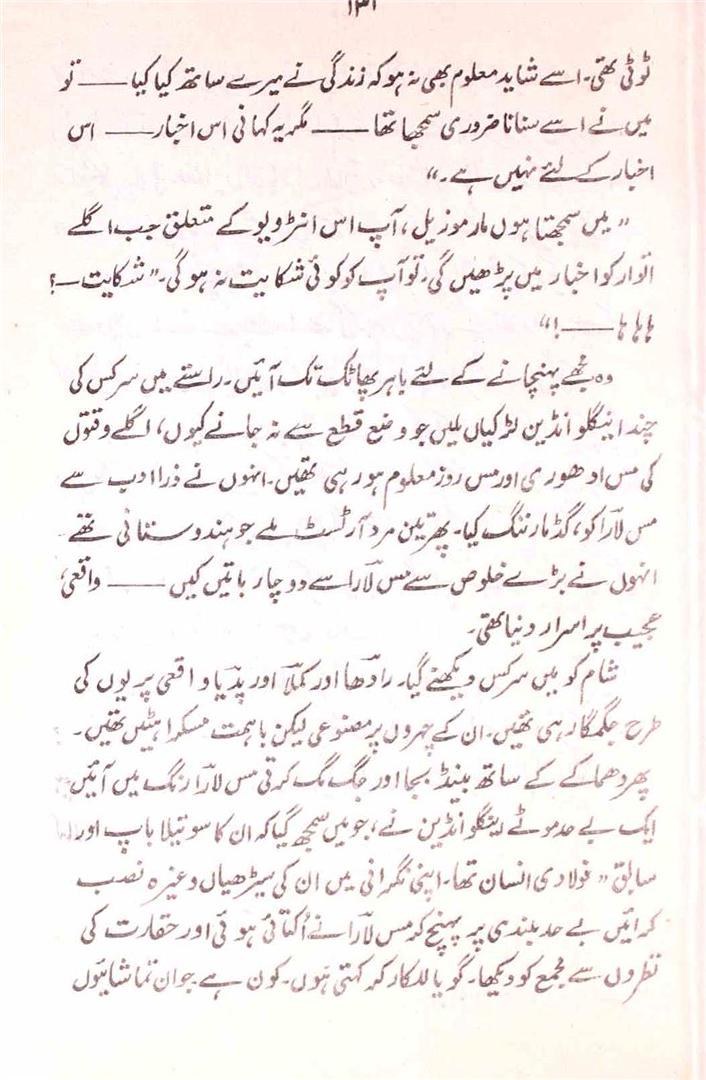 ۱۳۱
ٹوٹی تھی۔ اسے شاید معلوم بھی نہ ہو کہ زندگی نے میرے ساتھ کیا کیا —— تو
میں نے اسے سنانا ضروری سمجھا تھا —— مگر یہ کہانی اس اخبار —— اس
اخبار کے لئے نہیں ہے۔“
”میں سمجھتا ہوں مارموزیل، آپ اس انٹرویو کے متعلق جب اگلے
اتوار کو اخبار میں پڑھیں گی۔ تو آپ کو کوئی شکایت نہ ہوگی۔“ شکایت —؟
ہا ہا ہا ——!“
وہ مجھے پہنچانے کے لئے باہر پھاٹک تک آئیں۔ راستے میں سرکس کی
چند اینگلو انڈین لڑکیاں ملیں جو وضع قطع سے نہ جانے کیوں، اگلے وقتوں
کی مس ادھوری اور مس روز معلوم ہو رہی تھیں۔ انہوں نے ذرا ادب سے
مس لاؔرا کو، گڈ مارننگ کیا۔ پھر تین مرد آرٹسٹ ملے جو ہندوستانی تھے
انہوں نے بڑے خلوص سے مس لاؔرا سے دو چار باتیں کیں —— واقعی
عجیب پر اسرار دنیا تھی۔
شام کو میں سرکس دیکھنے گیا۔ رادؔھا اور کملاؔ اور پدؔیا واقعی پریوں کی
طرح جگمگا رہی تھیں۔ ان کے چہروں پر مصنوعی لیکن باہمت مسکراہٹیں تھیں۔
پھر دھماکے کے ساتھ بینڈ بجا اور جگ مگ کرتی مس لاؔرا رنگ میں آئیں
ایک بے حد موٹے اینگلو انڈین نے، جو میں سمجھ گیا کہ ان کا سوتیلا باپ اور
سابق ”فولادی انسان تھا۔ اپنی نگرانی میں ان کی سیڑھیاں وغیرہ نصب
کرائیں بے حد بلندی پر پہنچ کر مس لاؔرا نے اُکتائی ہوئی اور حقارت کی
نظروں سے مجمع کو دیکھا۔ گویا للکار کر کہتی ہوں۔ کون ہے جو ان تماشائیوں